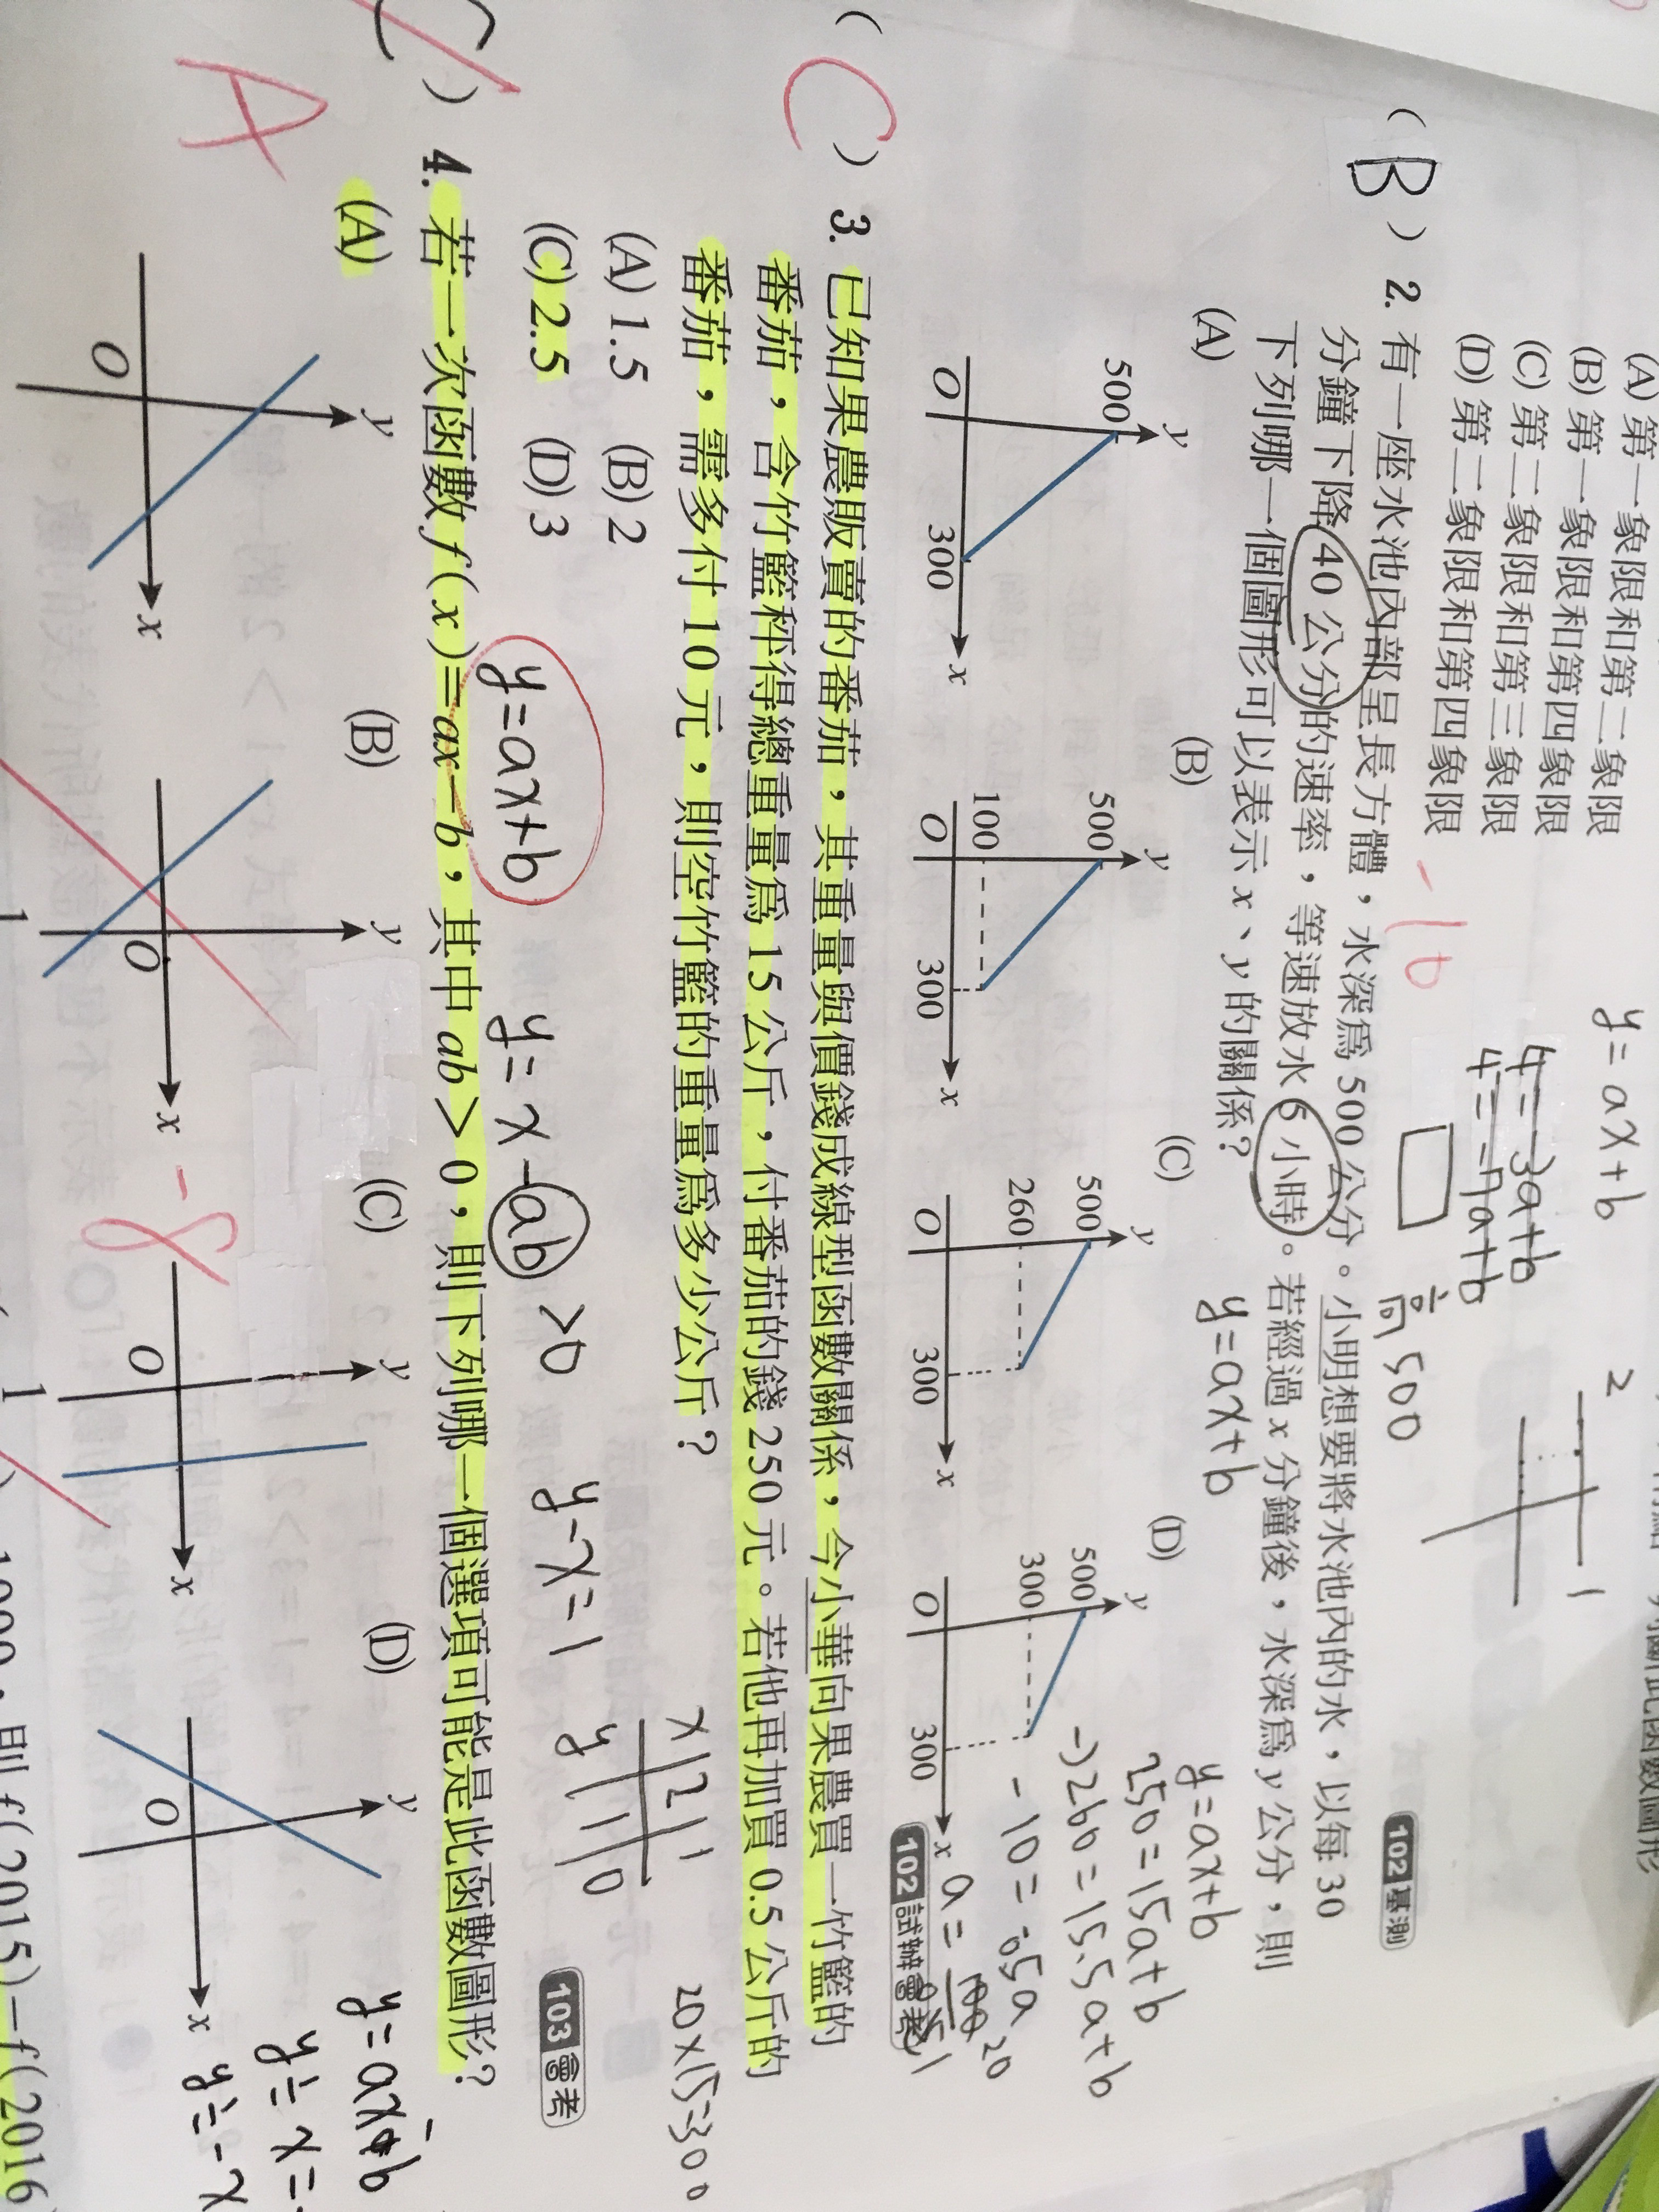 (A) 第一象限和第二象限
(B) 第一象限和第四象限
(C) 第二象限和第三象限
(D) 第二象限和第四象限
y = ax+b
4 = 3a+b
-1b
2
1
102 基測
( B ) 2. 有一座水池內部呈長方體，水深為 500 公分。小明想要將水池內的水，以每 30
分鐘下降 40 公分的速率，等速放水 5 小時。若經過 x 分鐘後，水深為 y 公分，則
下列哪一個圖形可以表示 x、y 的關係？
高 500
y=ax+b
(A)
(B)
(C)
(D)
y
500
O
300
x
y
500
100
O
300
x
y
500
260
O
300
x
y
500
300
O
300
x
y=ax+b
250=15a+b
-)260=15.5a+b
-10=
a=
20
102 試辦會考
( C ) 3. 已知果農販賣的番茄，其重量與價錢成線型函數關係，今小華向果農買一竹籃的
番茄，含竹籃秤得總重量為 15 公斤，付番茄的錢 250 元。若他再加買 0.5 公斤的
番茄，需多付 10 元，則空竹籃的重量為多少公斤？
(A) 1.5 (B) 2
(C) 2.5 (D) 3
20×15=300
x 2 1
y 1 0
103 會考
y=ax+b
y= x-ab >0
y-x=1
( C ) 4. 若一次函數 f(x)=ax-b，其中 ab>0，則下列哪一個選項可能是此函數圖形？
A
(A)
(B)
(C)
(D)
y
O
x
y
O
x
y
O
x
y
O
x
-8
y= x=
y= -x
f(2015)-f(2016